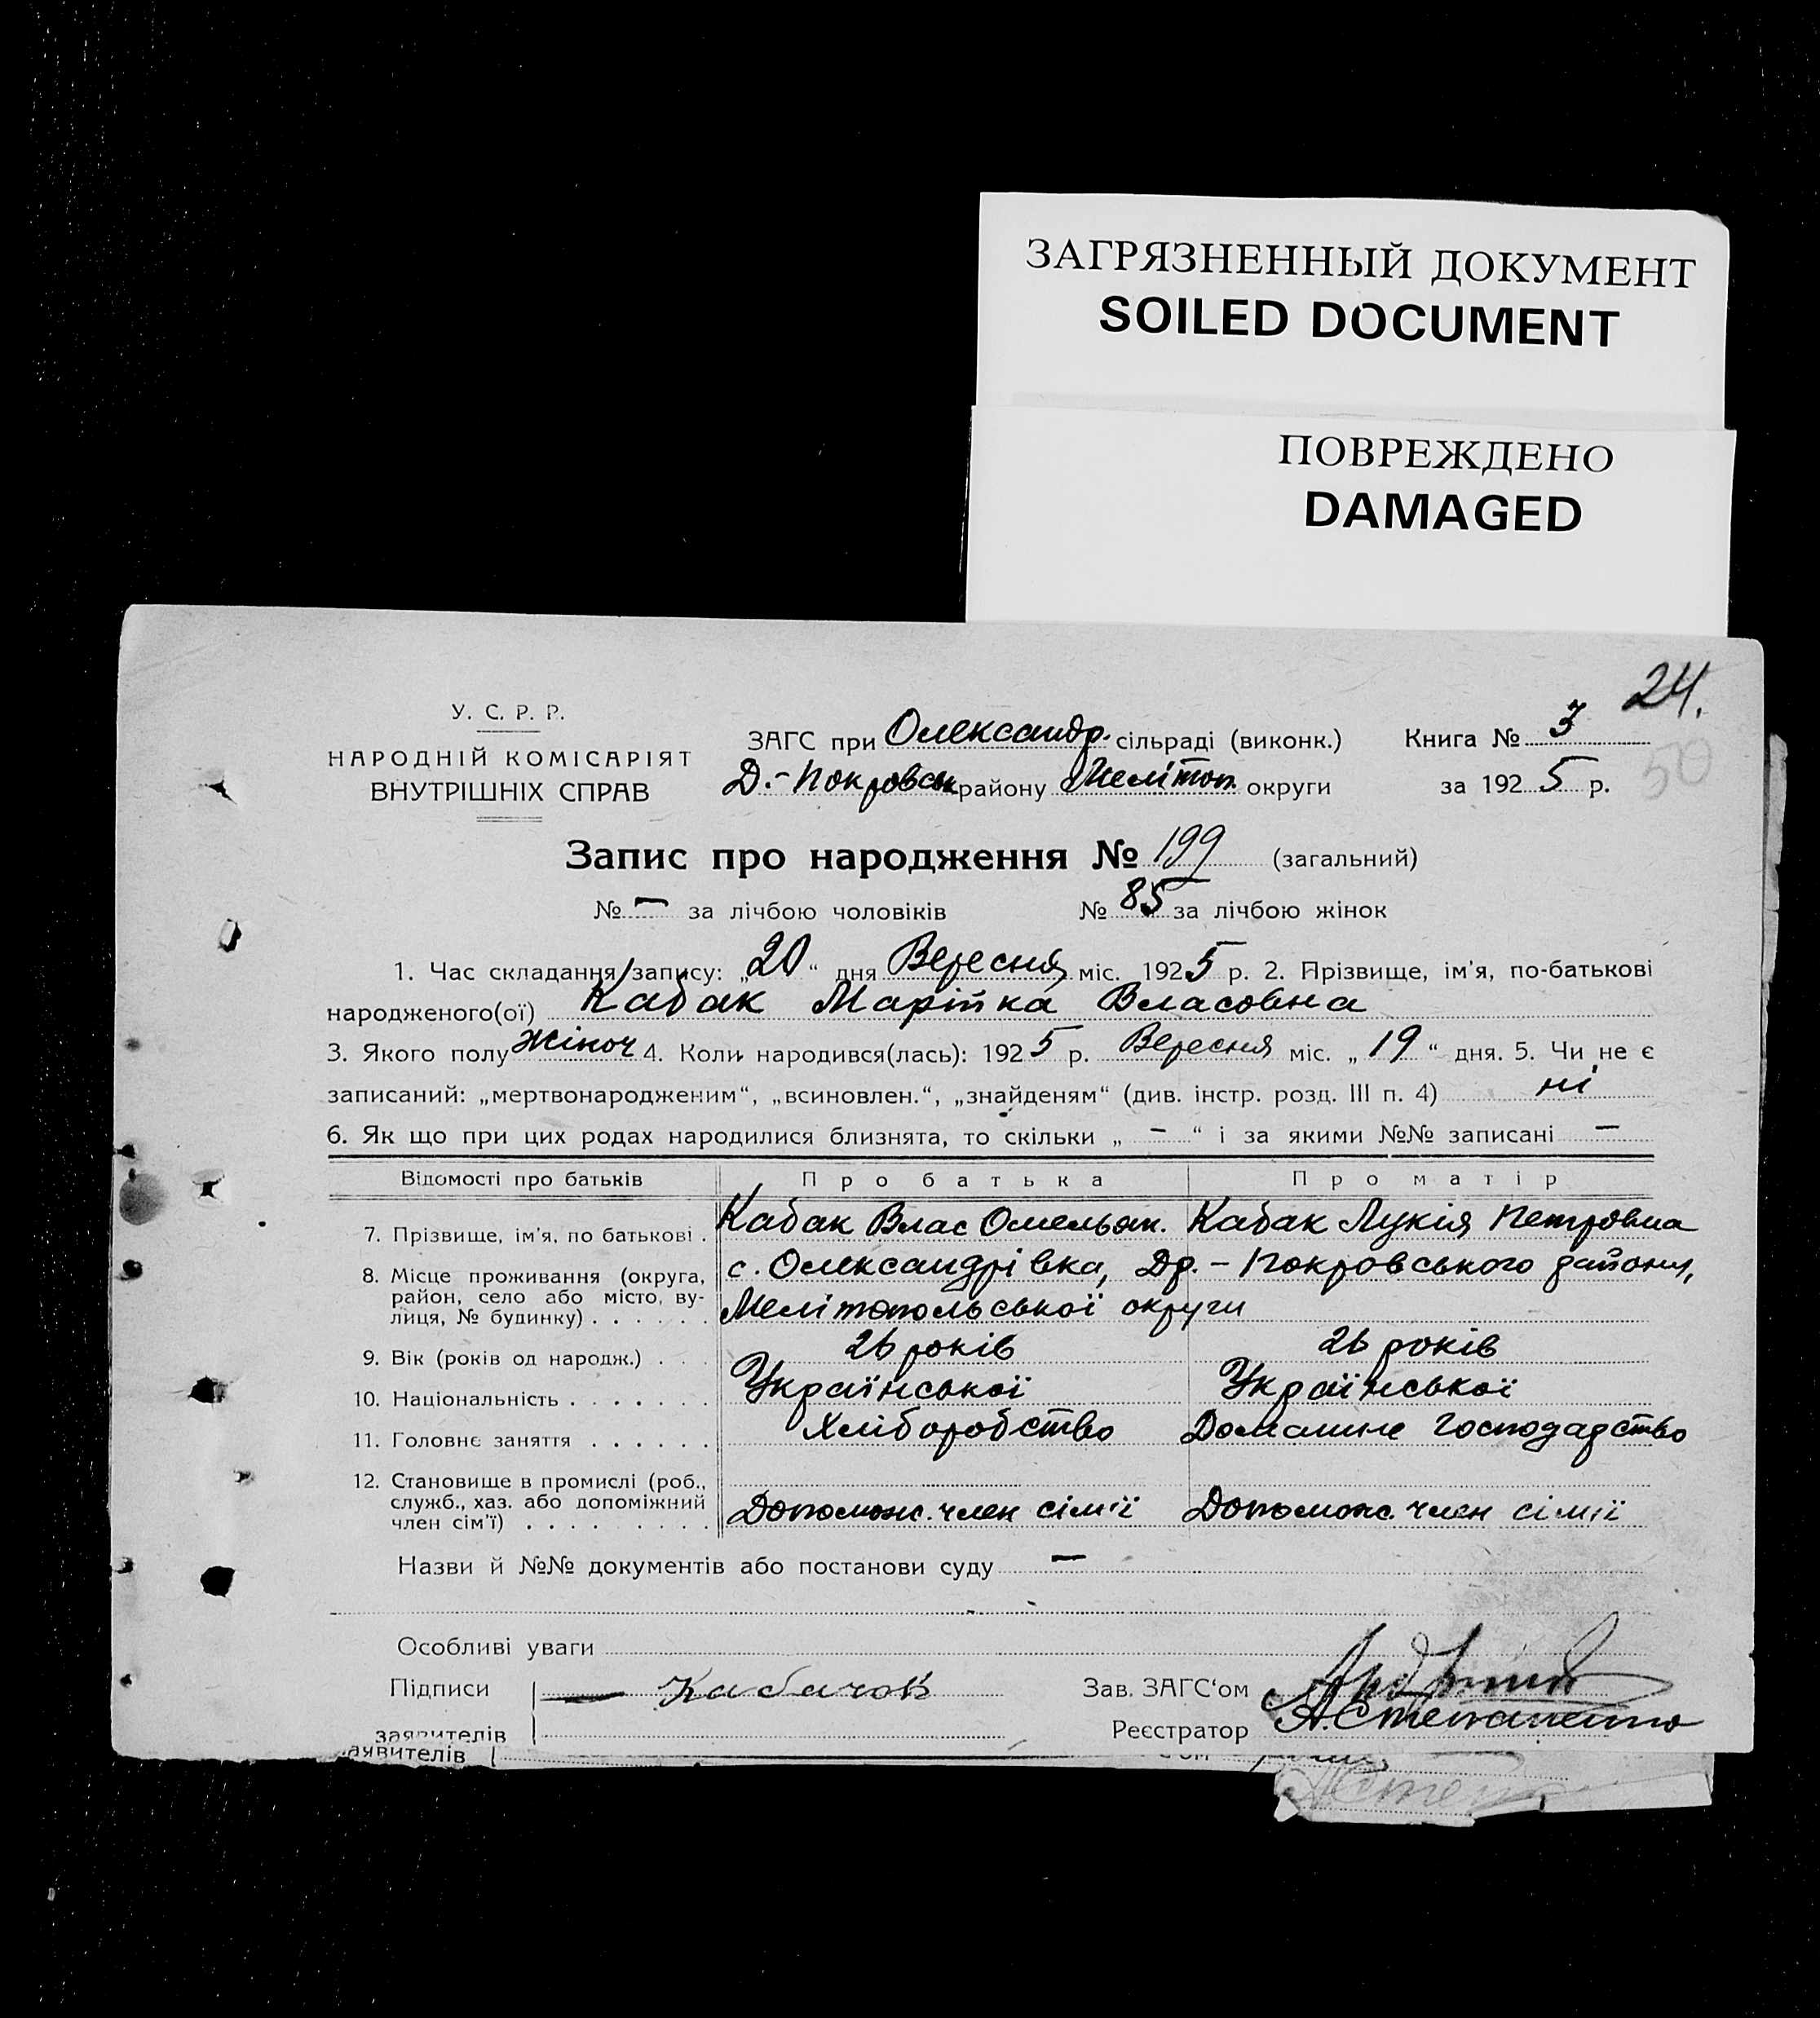 ЗАГРЯЗНЕННЫЙ ДОКУМЕНТ
SOILED DOCUMENT
ПОВРЕЖДЕНО
DAMAGED
24.
50
У. С. Р. Р.
НАРОДНІЙ КОМІСАРІЯТ
ВНУТРІШНІХ СПРАВ
ЗАГС при Олександр. сільраді (виконк.) Книга № 3
Д.-Покровськ району Мелітоп. округи за 1925 р.
Запис про народження № 199 (загальний)
№ — за лічбою чоловіків № 85 за лічбою жінок
1. Час складання запису: „20“ дня Вересня міс. 1925 р. 2. Прізвище, ім'я, по-батькові
народженого(ої) Кабак Марійка Власовна
3. Якого полу Жіноч 4. Коли народився(лась): 1925 р. Вересня міс. „19“ дня. 5. Чи не є
записаний: „мертвонародженим“, „всиновлен.“, „знайденям“ (див. інстр. розд. III п. 4) ні
6. Як що при цих родах народилися близнята, то скільки „ — “ і за якими №№ записані —
Відомості про батьків Про батька Про матір
7. Прізвище, ім'я, по батькові . Кабак Влас Омельян. Кабак Лукія Петровна
8. Місце проживання (округа, район, село або місто, вулиця, № будинку) . . . . . . с. Олександрівка, Др.-Покровського району,
Мелітопольської округи
9. Вік (років од народж.) . . . 26 років 26 років
10. Національність . . . . . . . Української Української
11. Головнє заняття . . . . . . Хліборобство Домашне господадство
12. Становище в промислі (роб., служб., хаз. або допоміжний член сім'ї) . . . . . . . . Допоможс. член сім'ї Допоможс. член сім'ї
Назви й №№ документів або постанови суду —
Особливі уваги
Підписи — Кабачов Зав. ЗАГС'ом
заявителів Реєстратор А.Степаненко
аявителів